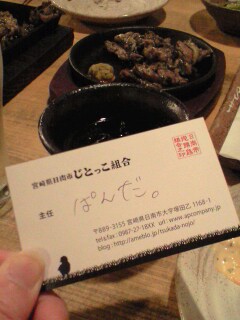 宮崎県日南市じとっこ組合
主任 ぱんだ。
〒889-3155 宮崎県日南市大字塚田乙1168-1
tel&fax : 0987-27-18XX url : www.apcompany.jp
blog : http://ameblo.jp/tsukada-nojo/